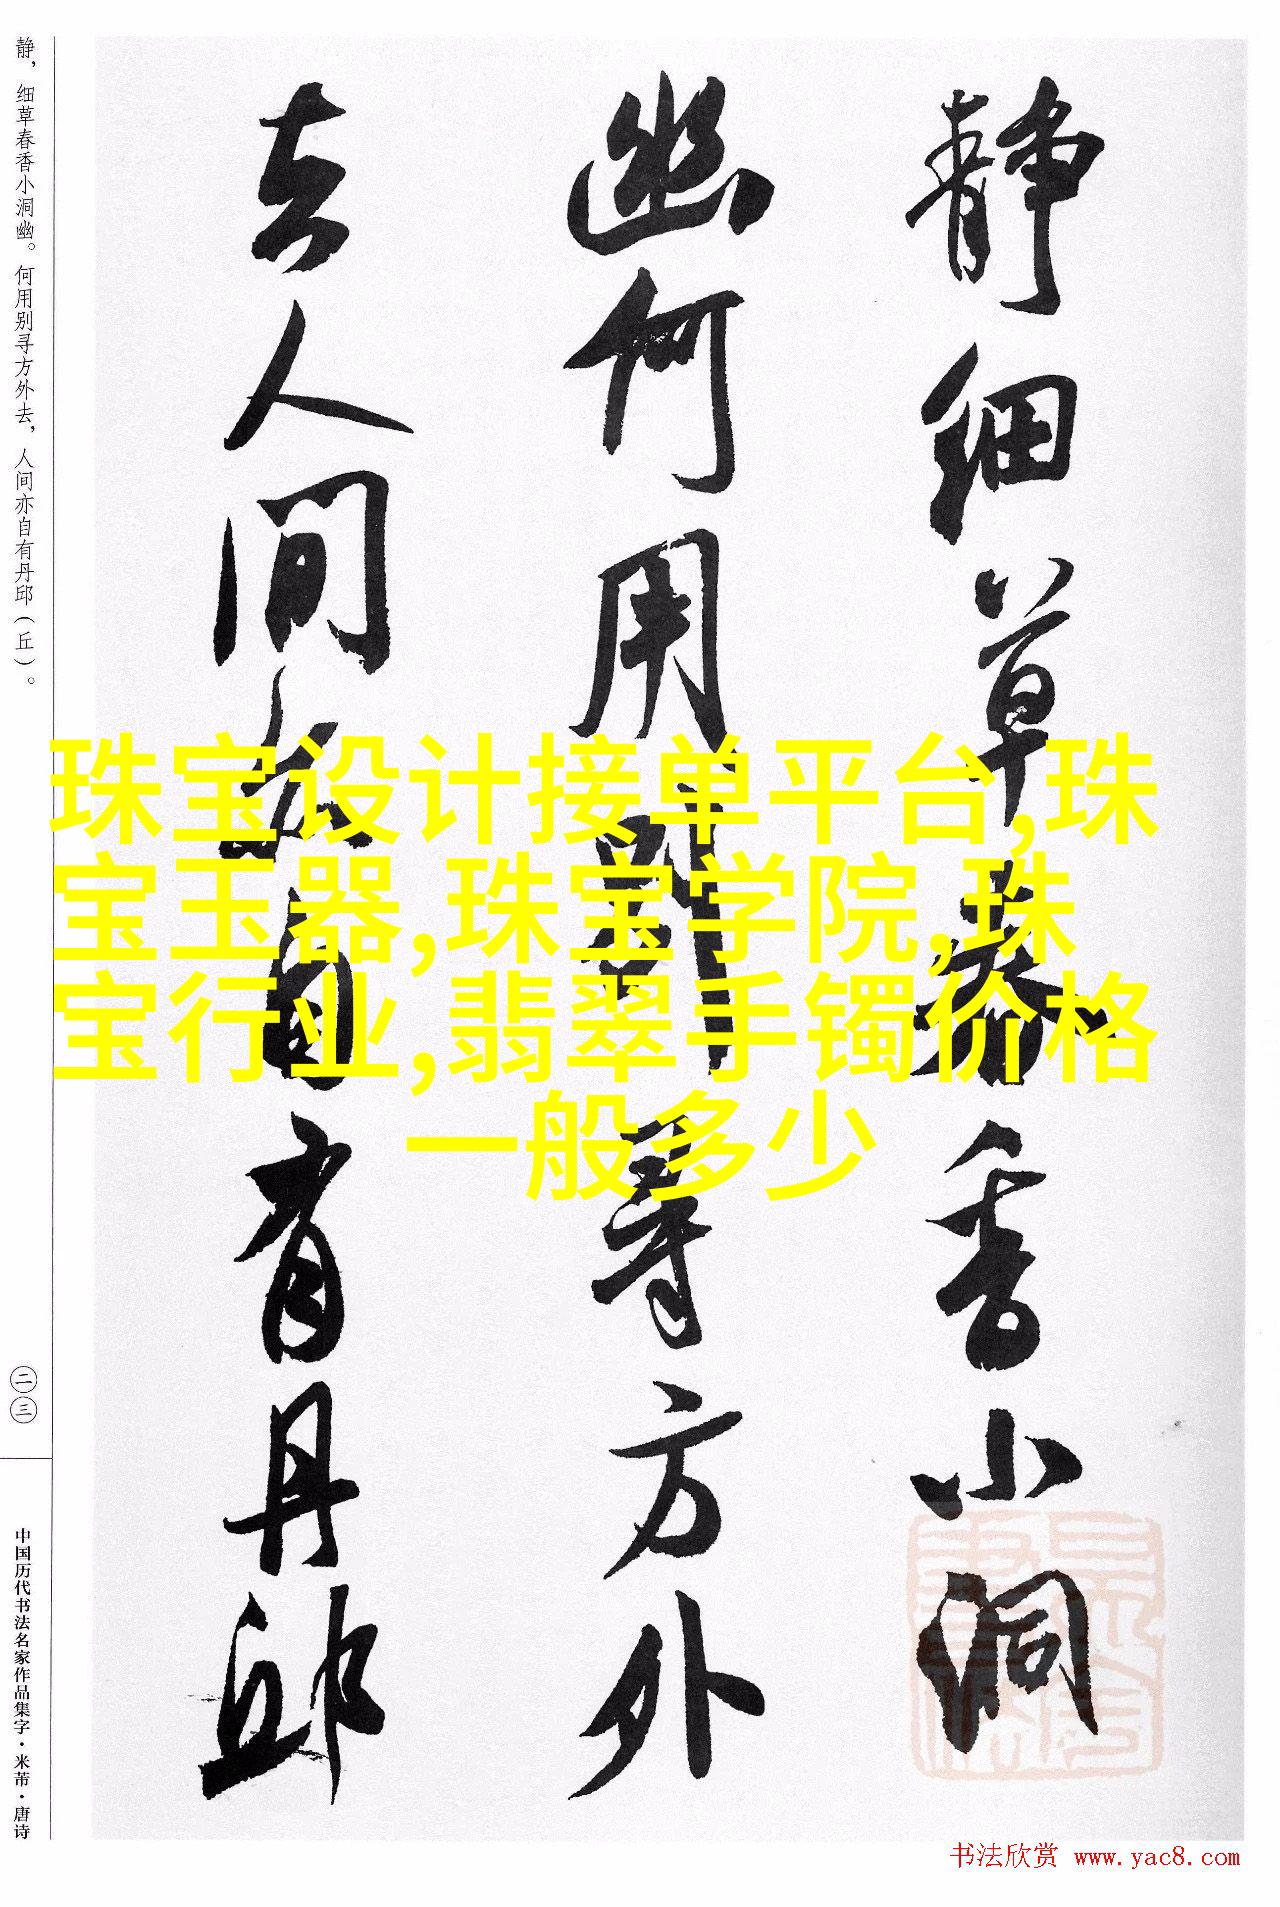 静细草春香小洞
幽何用别寻方外
去人间亦自有丹邱
珠宝设计接单平台,珠
宝玉器,珠宝学院,珠
宝行业,翡翠手镯价格
一般多少
静，细草春香小洞幽。何用别寻方外去，人间亦自有丹邱（丘）。
二三
中国历代书法名家作品集字·米芾·唐诗
书法欣赏 www.yac8.com